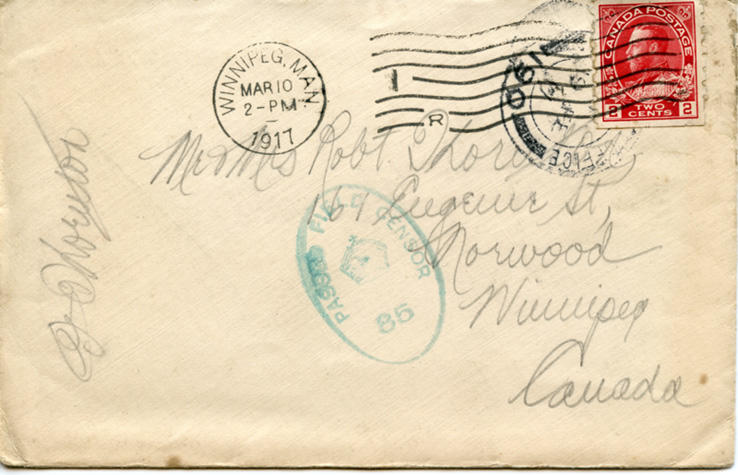 WINNIPEG, MAN.
MAR 10
2-PM
1917
I
R
OFFICE
CANADA POSTAGE
2 TWO CENTS 2
Mr & Mrs Robt. Thornton
169 Eugenie St,
Norwood
Winnipeg
Canada
PASSED FIELD CENSOR
85
Thornton